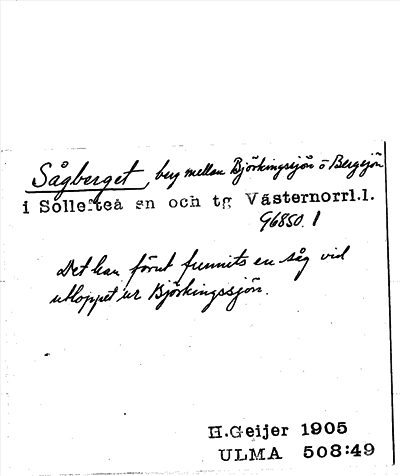 Sågberget, berg mellan Björkingssjön o Bergsjön
i Sollefteå sn och tg Västernorrl.l.
96850.1
Det kan förut funnits en såg vid
utloppet ur Björkingssjön.
H.Geijer 1905
ULMA 508:49